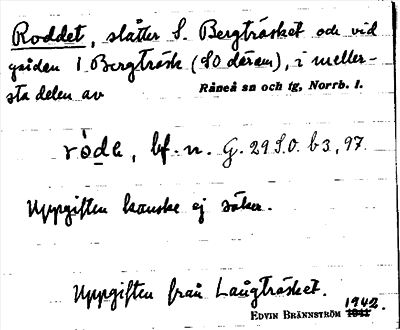 Roddet, slåtter S. Bergträsket och vid
gsiden I Bergträsk (SO därom), i meller-
sta delen av Råneå sn och tg, Norrb. l.
ròde, bf. n. G. 29 S.O. b3, 97.
Uppgiften kanske ej säker.
Uppgiften från Långträsket.
EDVIN BRÄNNSTRÖM 1942.